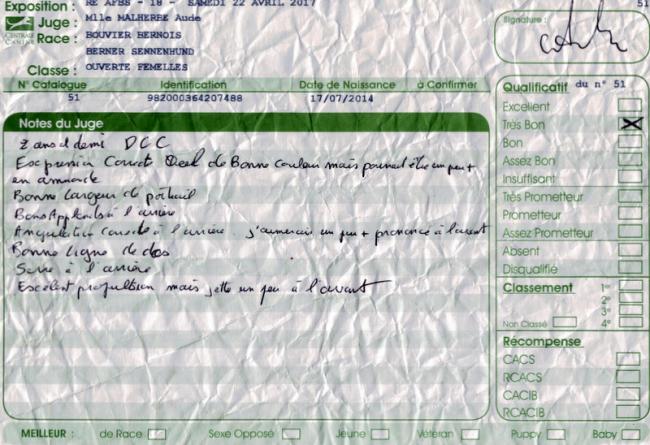 Exposition : RE AFBS - 18 - SAMEDI 22 AVRIL 2017 51
Juge : Mlle MALHERBE Aude
CENTRALE CANINE
Race : BOUVIER BERNOIS
BERNER SENNENHUND
Classe : OUVERTE FEMELLES
Signature :
N° Catalogue Identification Date de Naissance à Confirmer
51 982000364207488 17/07/2014
Notes du Juge
2 ans et demi DCC
Expression Correcte Oeil de Bonne Couleur mais pourrait être un peu +
en amande
Bonne largeur de poitrail
Bons Applombs à l'arrière
Angulation correcte à l'arrière j'aimerais un peu + prononcé à l'avant
Bonne ligne de dos
Serre à l'arrière
Excelent propulsion mais jette un peu à l'avant
Qualificatif du n° 51
Excellent
Très Bon
Bon
Assez Bon
Insuffisant
Très Prometteur
Prometteur
Assez Prometteur
Absent
Disqualifié
Classement 1°
2°
3°
Non Classé 4°
Récompense
CACS
RCACS
CACIB
RCACIB
MEILLEUR : de Race Sexe Opposé Jeune Vétéran Puppy Baby